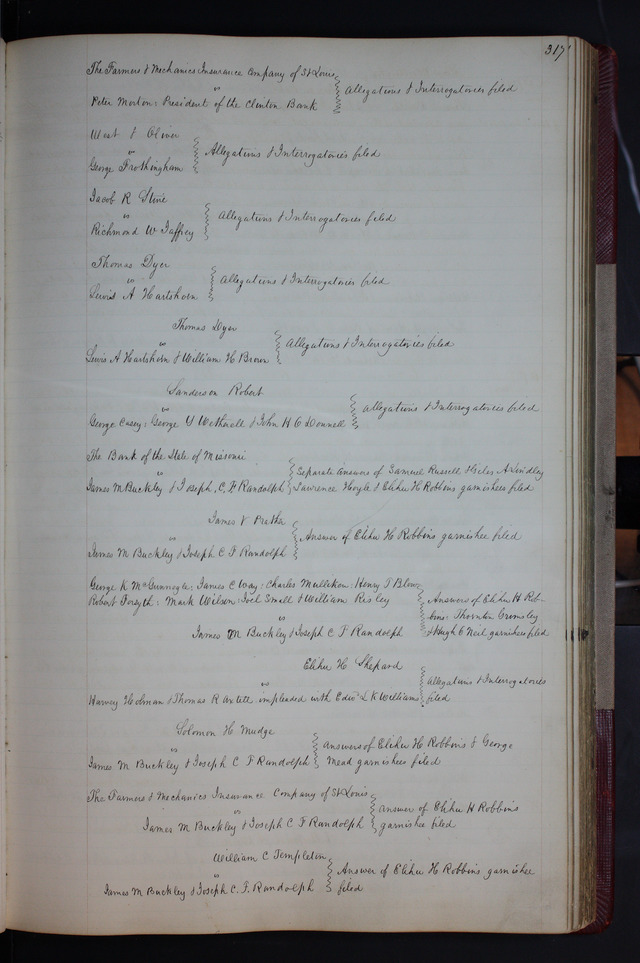 317
The Farmers & Mechanics Insurance Company of St Louis
vs
Allegations & Interrogatories filed
Peter Morton: President of the Clinton Bank
West & Oliver
vs
Allegations & Interrogatories filed
George Frothingham
Jacob R Stine
vs
Allegations & Interrogatories filed
Richmond W Jaffrey
Thomas Dyer
vs
Allegations & Interrogatories filed
Lewis A Hartshorn
Thomas Dyer
vs
Allegations & Interrogatories filed
Lewis A Hartshorn & William H Brown
Sanderson Robert
vs
Allegations & Interrogatories filed
George Casey: George Y Wethnell & John H O Donnell
The Bank of the State of Missouri
vs
Separate answers of Samuel Russell: Giles A Lindley
James M Buckley & Joseph, C, F, Randolph
Lawrence Hoyle & Elihu H Robbins garnishees filed
James V Prather
vs
Answer of Elihu H Robbins garnishee filed
James M Buckley & Joseph C F Randolph
George K McGunnegle: James C Way: Charles Mullikin: Henry T Blow
Robert Forsyth: Mark Wilson: Joel Small & William Risley
vs
Answers of Elihu H Rob-
bins: Thornton Grimsley
James M Buckley & Joseph C F Randolph
& Hugh O Neil garnishees filed
Elihu H Shepard
vs
Allegations & Interrogatories
Harvey Holman & Thomas R Axtell impleaded with Edwd L K Williams
filed
Solomon H Mudge
vs
answers of Elihu H Robbins & George
James M Buckley & Joseph C F Randolph
Mead garnishees filed
The Farmers & Mechanics Insurance Company of St Louis
vs
answer of Elihu H Robbins
James M Buckley & Joseph C F Randolph
garnishee filed
William C Templeton
vs
Answer of Elihu H Robbins garnishee
James M Buckley & Joseph C. F. Randolph
filed